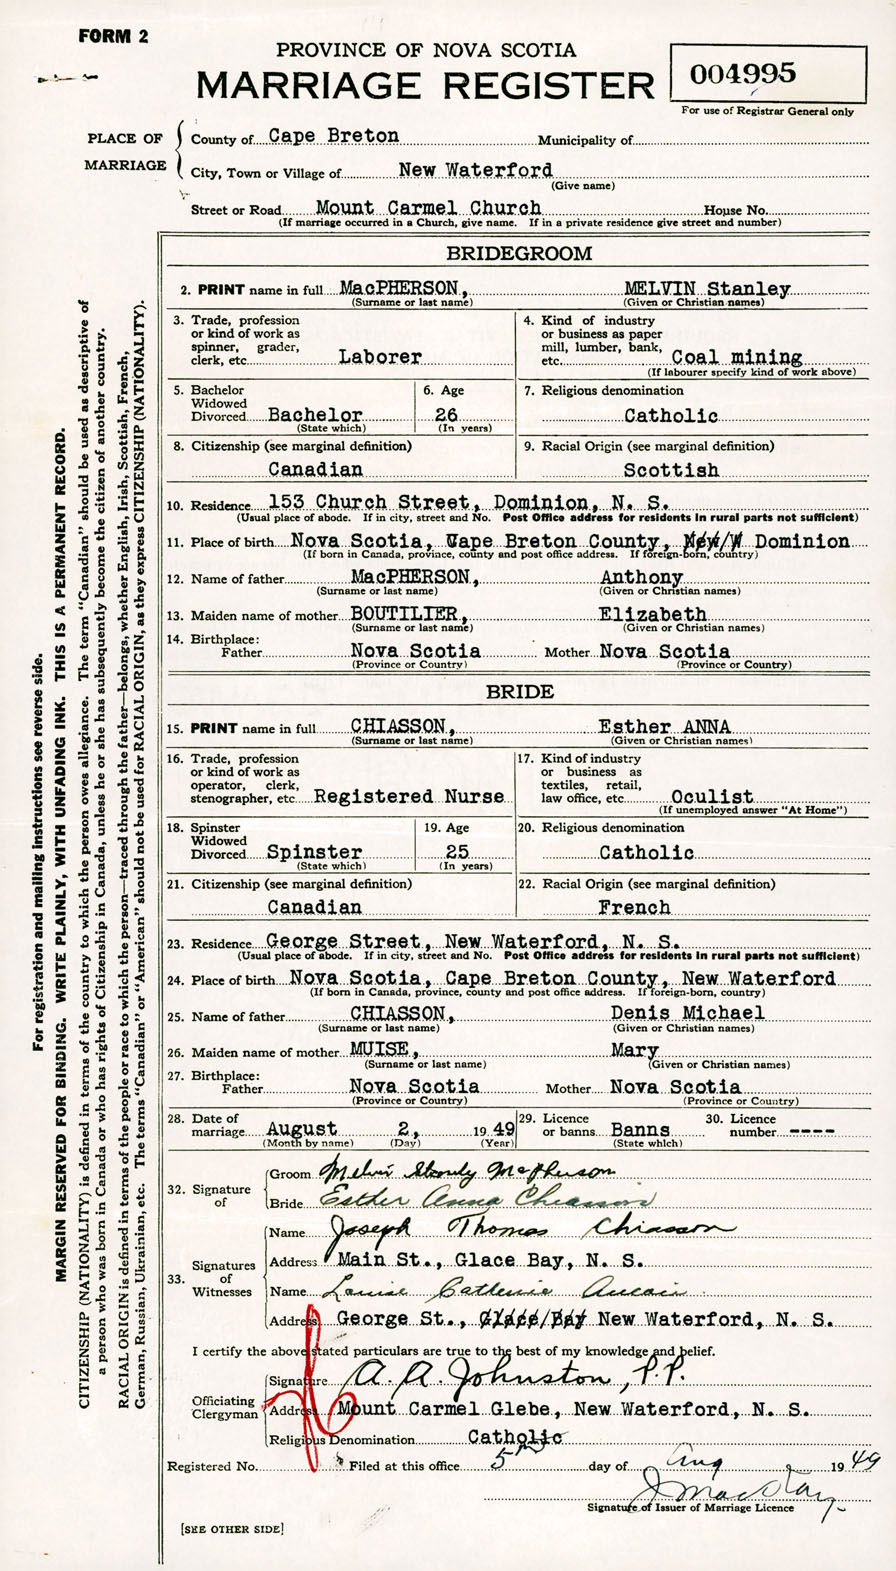 FORM 2
PROVINCE OF NOVA SCOTIA
MARRIAGE REGISTER
004995
For use of Registrar General only
PLACE OF MARRIAGE
County of Cape Breton Municipality of
City, Town or Village of New Waterford
(Give name)
Street or Road Mount Carmel Church House No.
(If marriage occurred in a Church, give name. If in a private residence give street and number)
BRIDEGROOM
2. PRINT name in full MacPHERSON, MELVIN Stanley
(Surname or last name) (Given or Christian names)
3. Trade, profession or kind of work as spinner, grader, clerk, etc. Laborer
4. Kind of industry or business as paper mill, lumber, bank, etc. Coal mining
(If labourer specify kind of work above)
5. Bachelor Widowed Divorced Bachelor
(State which)
6. Age 26
(In years)
7. Religious denomination
Catholic
8. Citizenship (see marginal definition)
Canadian
9. Racial Origin (see marginal definition)
Scottish
10. Residence 153 Church Street, Dominion, N. S.
(Usual place of abode. If in city, street and No. Post Office address for residents in rural parts not sufficient)
11. Place of birth Nova Scotia, Cape Breton County, New W Dominion
(If born in Canada, province, county and post office address. If foreign-born, country)
12. Name of father MacPHERSON, Anthony
(Surname or last name) (Given or Christian names)
13. Maiden name of mother BOUTILIER, Elizabeth
(Surname or last name) (Given or Christian names)
14. Birthplace:
Father Nova Scotia Mother Nova Scotia
(Province or Country) (Province or Country)
BRIDE
15. PRINT name in full CHIASSON, Esther ANNA
(Surname or last name) (Given or Christian names)
16. Trade, profession or kind of work as operator, clerk, stenographer, etc. Registered Nurse
17. Kind of industry or business as textiles, retail, law office, etc. Oculist
(If unemployed answer "At Home")
18. Spinster Widowed Divorced Spinster
(State which)
19. Age 25
(In years)
20. Religious denomination
Catholic
21. Citizenship (see marginal definition)
Canadian
22. Racial Origin (see marginal definition)
French
23. Residence George Street, New Waterford, N. S.
(Usual place of abode. If in city, street and No. Post Office address for residents in rural parts not sufficient)
24. Place of birth Nova Scotia, Cape Breton County, New Waterford
(If born in Canada, province, county and post office address. If foreign-born, country)
25. Name of father CHIASSON, Denis Michael
(Surname or last name) (Given or Christian names)
26. Maiden name of mother MUISE, Mary
(Surname or last name) (Given or Christian names)
27. Birthplace:
Father Nova Scotia Mother Nova Scotia
(Province or Country) (Province or Country)
28. Date of marriage August 2, 1949
(Month by name) (Day) (Year)
29. Licence or banns Banns
(State which)
30. Licence number ----
32. Signature of
Groom Melvin Stanley MacPherson
Bride Esther Anna Chiasson
33. Signatures of Witnesses
Name Joseph Thomas Chiasson
Address Main St., Glace Bay, N. S.
Name Louise Catherine Aucoin
Address George St., Glace Bay New Waterford, N. S.
I certify the above stated particulars are true to the best of my knowledge and belief.
Officiating Clergyman
Signature A. A. Johnston, P.P.
Address Mount Carmel Glebe, New Waterford, N. S.
Religious Denomination Catholic
Registered No. Filed at this office 5th day of Aug 1949
Signature of Issuer of Marriage Licence
[SEE OTHER SIDE]
For registration and mailing instructions see reverse side.
MARGIN RESERVED FOR BINDING. WRITE PLAINLY, WITH UNFADING INK. THIS IS A PERMANENT RECORD.
CITIZENSHIP (NATIONALITY) is defined in terms of the country to which the person owes allegiance. The term "Canadian" should be used as descriptive of
a person who was born in Canada or who has rights of Citizenship in Canada, unless he or she has subsequently become the citizen of another country.
RACIAL ORIGIN is defined in terms of the people or race to which the person—traced through the father—belongs, whether English, Irish, Scottish, French,
German, Russian, Ukrainian, etc. The terms "Canadian" or "American" should not be used for RACIAL ORIGIN, as they express CITIZENSHIP (NATIONALITY).